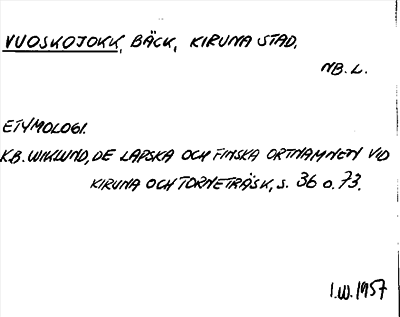 VUOSKOJOKK, BÄCK, KIRUNA STAD.
NB. L.
ETYMOLOGI.
K.B. WIKLUND, DE LAPSKA OCH FINSKA ORTNAMNEN VID
KIRUNA OCH TORNETRÄSK, S. 36 o. 73.
I.W. 1957